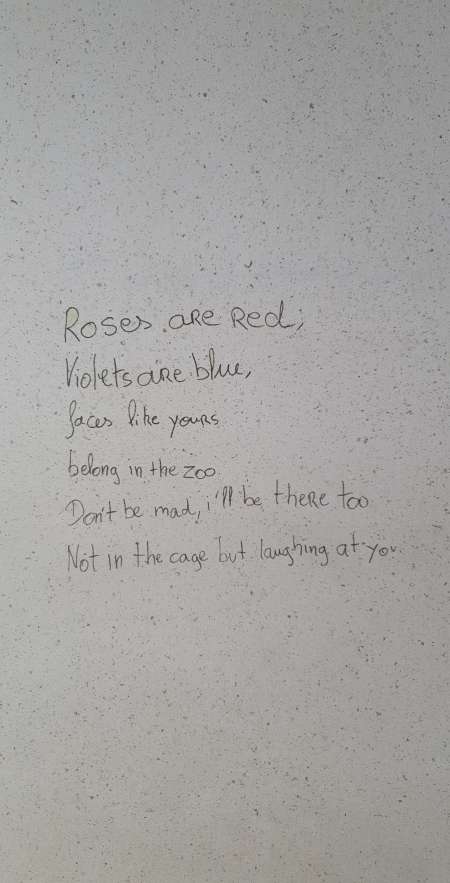 Roses are Red,
Violets are blue,
faces like yours
belong in the zoo.
Don't be mad, i'll be there too
Not in the cage but laughing at you.